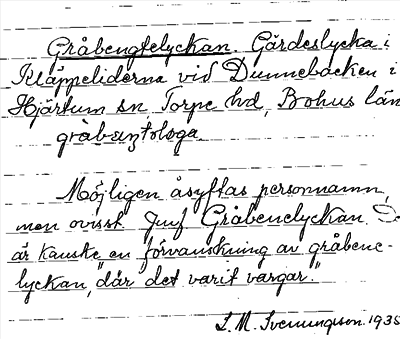 Gråbengtelyckan. Gärdeslycka i
Kläppeliderna vid Dunnebacken i
Hjärtum sn, Torpe hd, Bohus län
Möjligen åsyftas personnamn,
men ovisst. Jmf Gråbenelyckan
är kanske en förvanskning av gråbene-
lyckan, "där det varit vargar."
S. M. Svenungson. 1935